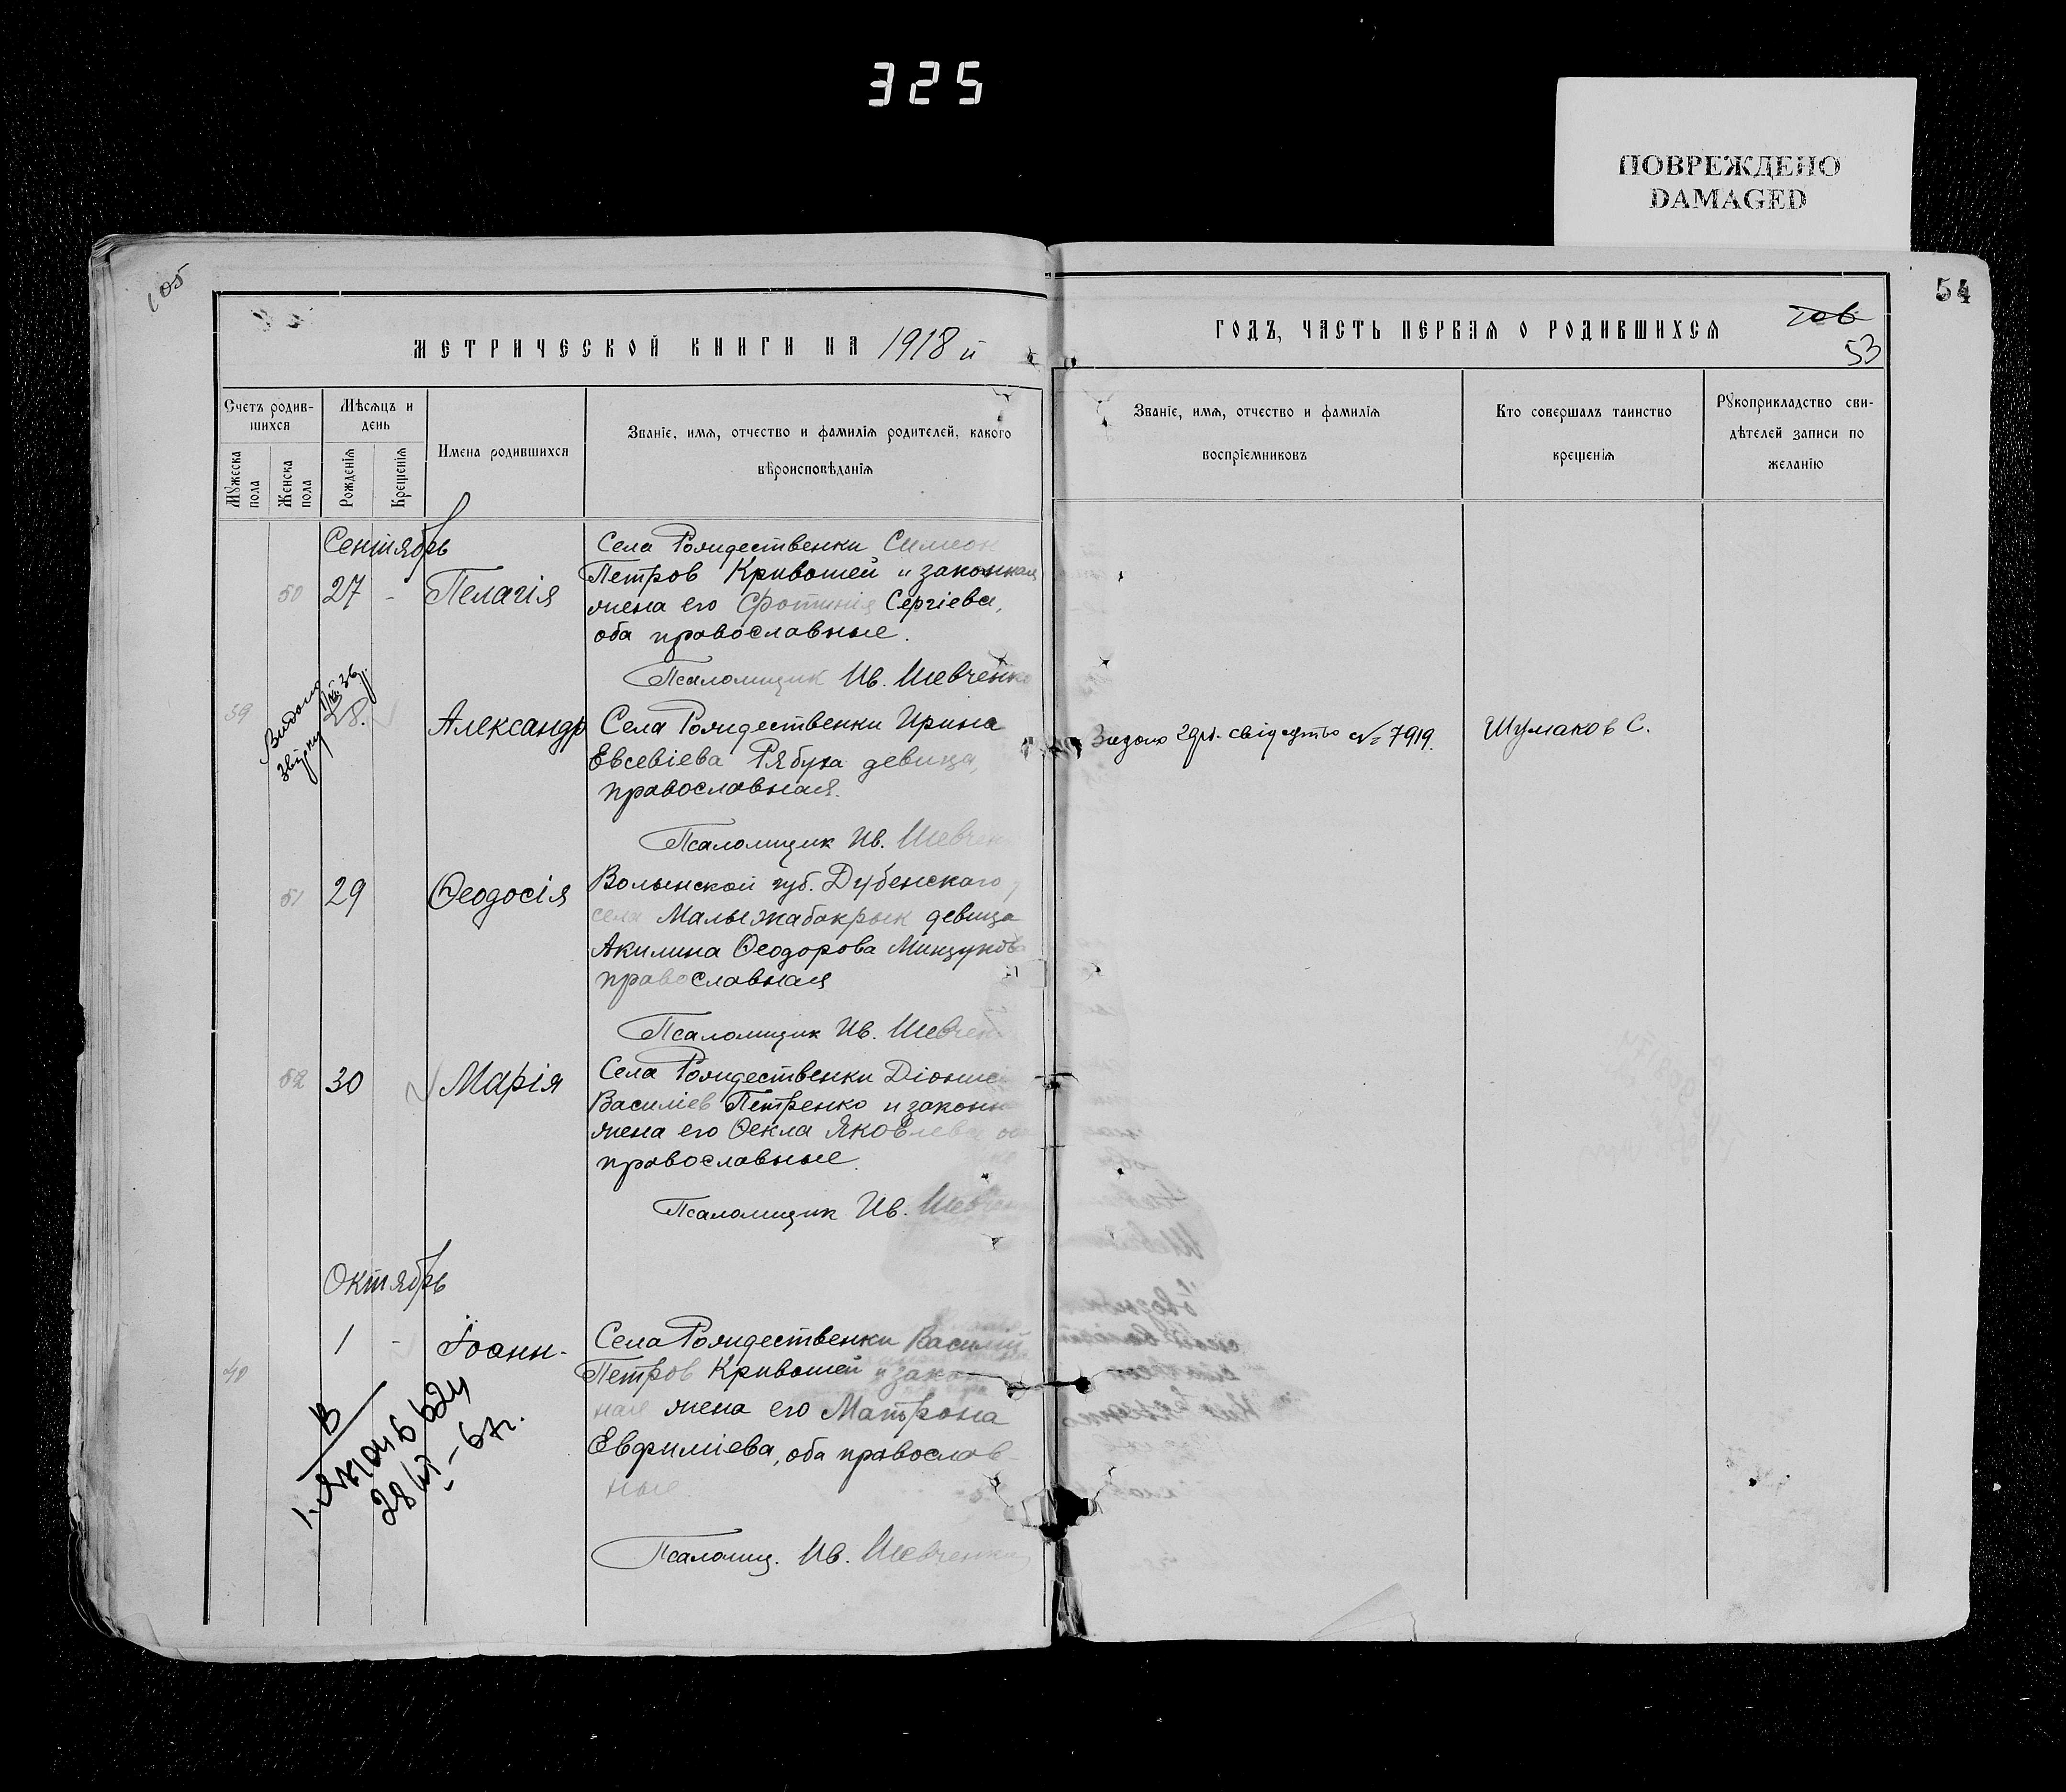 325
ПОВРЕЖДЕНО
DAMAGED
105
54
МЕТРИЧЕСКОЙ КНИГИ НА 1918 й
ГОДЪ, ЧАСТЬ ПЕРВАЯ О РОДИВШИХСЯ
106
53
Счетъ родив-
шихся
Мѣсяцъ и
день
Мужеска
пола
Женска
пола
Рожденія
Крещенія
Имена родившихся
Званіе, имя, отчество и фамилія родителей, какого
вѣроисповѣданія
Званіе, имя, отчество и фамилія
воспріемниковъ
Кто совершалъ таинство
крещенія
Рукоприкладство сви-
дѣтелей записи по
желанію
Сентябрь
50 27 - Пелагія
Села Рождественки Симеон
Петров Кривошей и законная
жена его Фотинія Сергіева,
оба православные.
Псаломщик Ив. Шевченко
39 28. Александр
Села Рождественки Ирина
Евсевіева Рябуха девица,
православная.
№ 7919.
Шумаков С.
Псаломщик Ив. Шевчен
51 29 Ѳеодосія
Волынской губ. Дубенскаго у
села Малые жабокрык девица
Акилина Ѳеодорова
православная
Псаломщик Ив. Шевчен
52 30 Марія
Села Рождественки Діониси
Василіев Петренко и законн
жена его Ѳекла Яковлева оба
православные.
Псаломщик Ив. Шевчен
Октябрь
40 1 - Іоанн.
Села Рождественки Василий
Петров Кривошей и закон
ная жена его Матрона
Евфиміева, оба православ-
ные.
28/VI - 67г.
Псаломщ. Ив. Шевченко